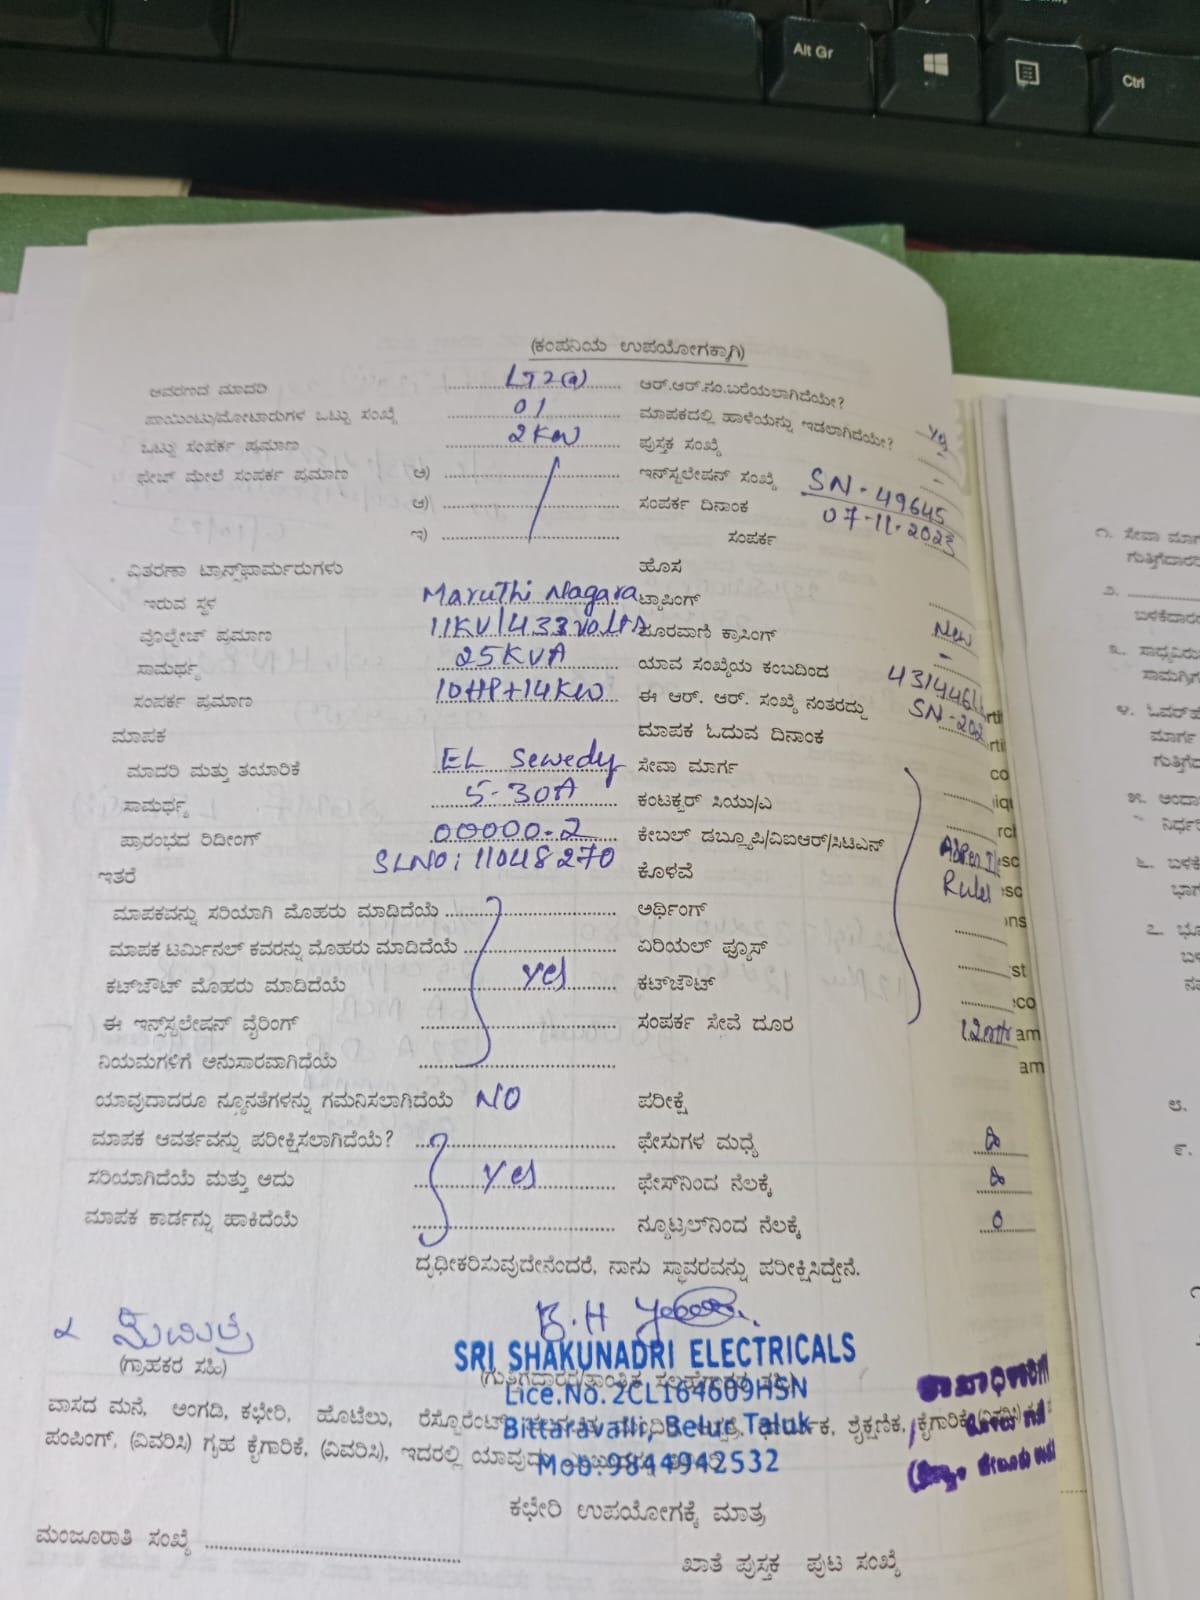 Alt Gr
Ctrl
(ಕಂಪನಿಯ ಉಪಯೋಗಕ್ಕಾಗಿ)
ಆವರಣದ ಮಾದರಿ LT2(a) ಆರ್.ಆರ್.ನಂ.ಬರೆಯಲಾಗಿದೆಯೇ?
ಪಾಯಿಂಟು/ಮೋಟಾರುಗಳ ಒಟ್ಟು ಸಂಖ್ಯೆ 01 ಮಾಪಕದಲ್ಲಿ ಹಾಳೆಯನ್ನು ಇಡಲಾಗಿದೆಯೇ?
ಒಟ್ಟು ಸಂಪರ್ಕ ಪ್ರಮಾಣ 2KW ಪುಸ್ತಕ ಸಂಖ್ಯೆ -
ಫೇಬ್ ಮೇಲೆ ಸಂಪರ್ಕ ಪ್ರಮಾಣ ಅ) ಇನ್‌ಸ್ಟಲೇಷನ್ ಸಂಖ್ಯೆ SN-49645
ಆ) ಸಂಪರ್ಕ ದಿನಾಂಕ 07-11-2023
ಇ) ಸಂಪರ್ಕ
ವಿತರಣಾ ಟ್ರಾನ್ಸ್‌ಫಾರ್ಮರುಗಳು ಹೊಸ
ಇರುವ ಸ್ಥಳ Maruthi Nagara ಟ್ಯಾಪಿಂಗ್
ವೊಲ್ಟೇಜ್ ಪ್ರಮಾಣ 11KV/433 volts ದೂರವಾಣಿ ಕ್ರಾಸಿಂಗ್ New
ಸಾಮರ್ಥ್ಯ 25KVA ಯಾವ ಸಂಖ್ಯೆಯ ಕಂಬದಿಂದ -
ಸಂಪರ್ಕ ಪ್ರಮಾಣ 10HP+14KW ಈ ಆರ್. ಆರ್. ಸಂಖ್ಯೆ ನಂತರದ್ದು
ಮಾಪಕ ಮಾಪಕ ಓದುವ ದಿನಾಂಕ
ಮಾದರಿ ಮತ್ತು ತಯಾರಿಕೆ EL Sewedy ಸೇವಾ ಮಾರ್ಗ
ಸಾಮರ್ಥ್ಯ 5-30A ಕಂಟಕ್ಟರ್ ಸಿಯು/ಎ
ಪ್ರಾರಂಭದ ರಿದೀಂಗ್ 00000.2 ಕೇಬಲ್ ಡಬ್ಲ್ಯೂಪಿ/ವಿಐಆರ್/ಸಿಟಿಎನ್
ಇತರೆ SLNO: 11048270 ಕೊಳವೆ Rules
ಮಾಪಕವನ್ನು ಸರಿಯಾಗಿ ಮೊಹರು ಮಾಡಿದೆಯೆ ಅರ್ಥಿಂಗ್
ಮಾಪಕ ಟರ್ಮಿನಲ್ ಕವರನ್ನು ಮೊಹರು ಮಾಡಿದೆಯೆ ಏರಿಯಲ್ ಫ್ಯೂಸ್
ಕಟ್‌ಔಟ್ ಮೊಹರು ಮಾಡಿದೆಯೆ Yes ಕಟ್‌ಔಟ್
ಈ ಇನ್ಸ್‌ಸ್ಟಲೇಷನ್ ವೈರಿಂಗ್ ಸಂಪರ್ಕ ಸೇವೆ ದೂರ
ನಿಯಮಗಳಿಗೆ ಅನುಸಾರವಾಗಿದೆಯೆ
ಯಾವುದಾದರೂ ನ್ಯೂನತೆಗಳನ್ನು ಗಮನಿಸಲಾಗಿದೆಯೆ NO ಪರೀಕ್ಷೆ
ಮಾಪಕ ಆವರ್ತವನ್ನು ಪರೀಕ್ಷಿಸಲಾಗಿದೆಯೆ? ಫೇಸುಗಳ ಮಧ್ಯೆ
ಸರಿಯಾಗಿದೆಯೆ ಮತ್ತು ಅದು Yes ಫೇಸ್‌ನಿಂದ ನೆಲಕ್ಕೆ
ಮಾಪಕ ಕಾರ್ಡನ್ನು ಹಾಕಿದೆಯೆ ನ್ಯೂಟ್ರಲ್‌ನಿಂದ ನೆಲಕ್ಕೆ 0
ದೃಢೀಕರಿಸುವುದೇನೆಂದರೆ, ನಾನು ಸ್ಥಾವರವನ್ನು ಪರೀಕ್ಷಿಸಿದ್ದೇನೆ.
(ಗ್ರಾಹಕರ ಸಹಿ)
SRI SHAKUNADRI ELECTRICALS
Lice.No. 2CL164609HSN
Bittaravalli, Belur Taluk
Mob:9844942532
ವಾಸದ ಮನೆ, ಅಂಗಡಿ, ಕಛೇರಿ, ಹೊಟೆಲು, ರೆಸ್ಟೊರೆಂಟ್ ಶೈಕ್ಷಣಿಕ, ಕೈಗಾರಿಕೆ (ವಿವರಿಸಿ)
ಪಂಪಿಂಗ್, (ವಿವರಿಸಿ) ಗೃಹ ಕೈಗಾರಿಕೆ, (ವಿವರಿಸಿ), ಇದರಲ್ಲಿ
ಕಛೇರಿ ಉಪಯೋಗಕ್ಕೆ ಮಾತ್ರ
ಮಂಜೂರಾತಿ ಸಂಖ್ಯೆ ಖಾತೆ ಪುಸ್ತಕ ಪುಟ ಸಂಖ್ಯೆ